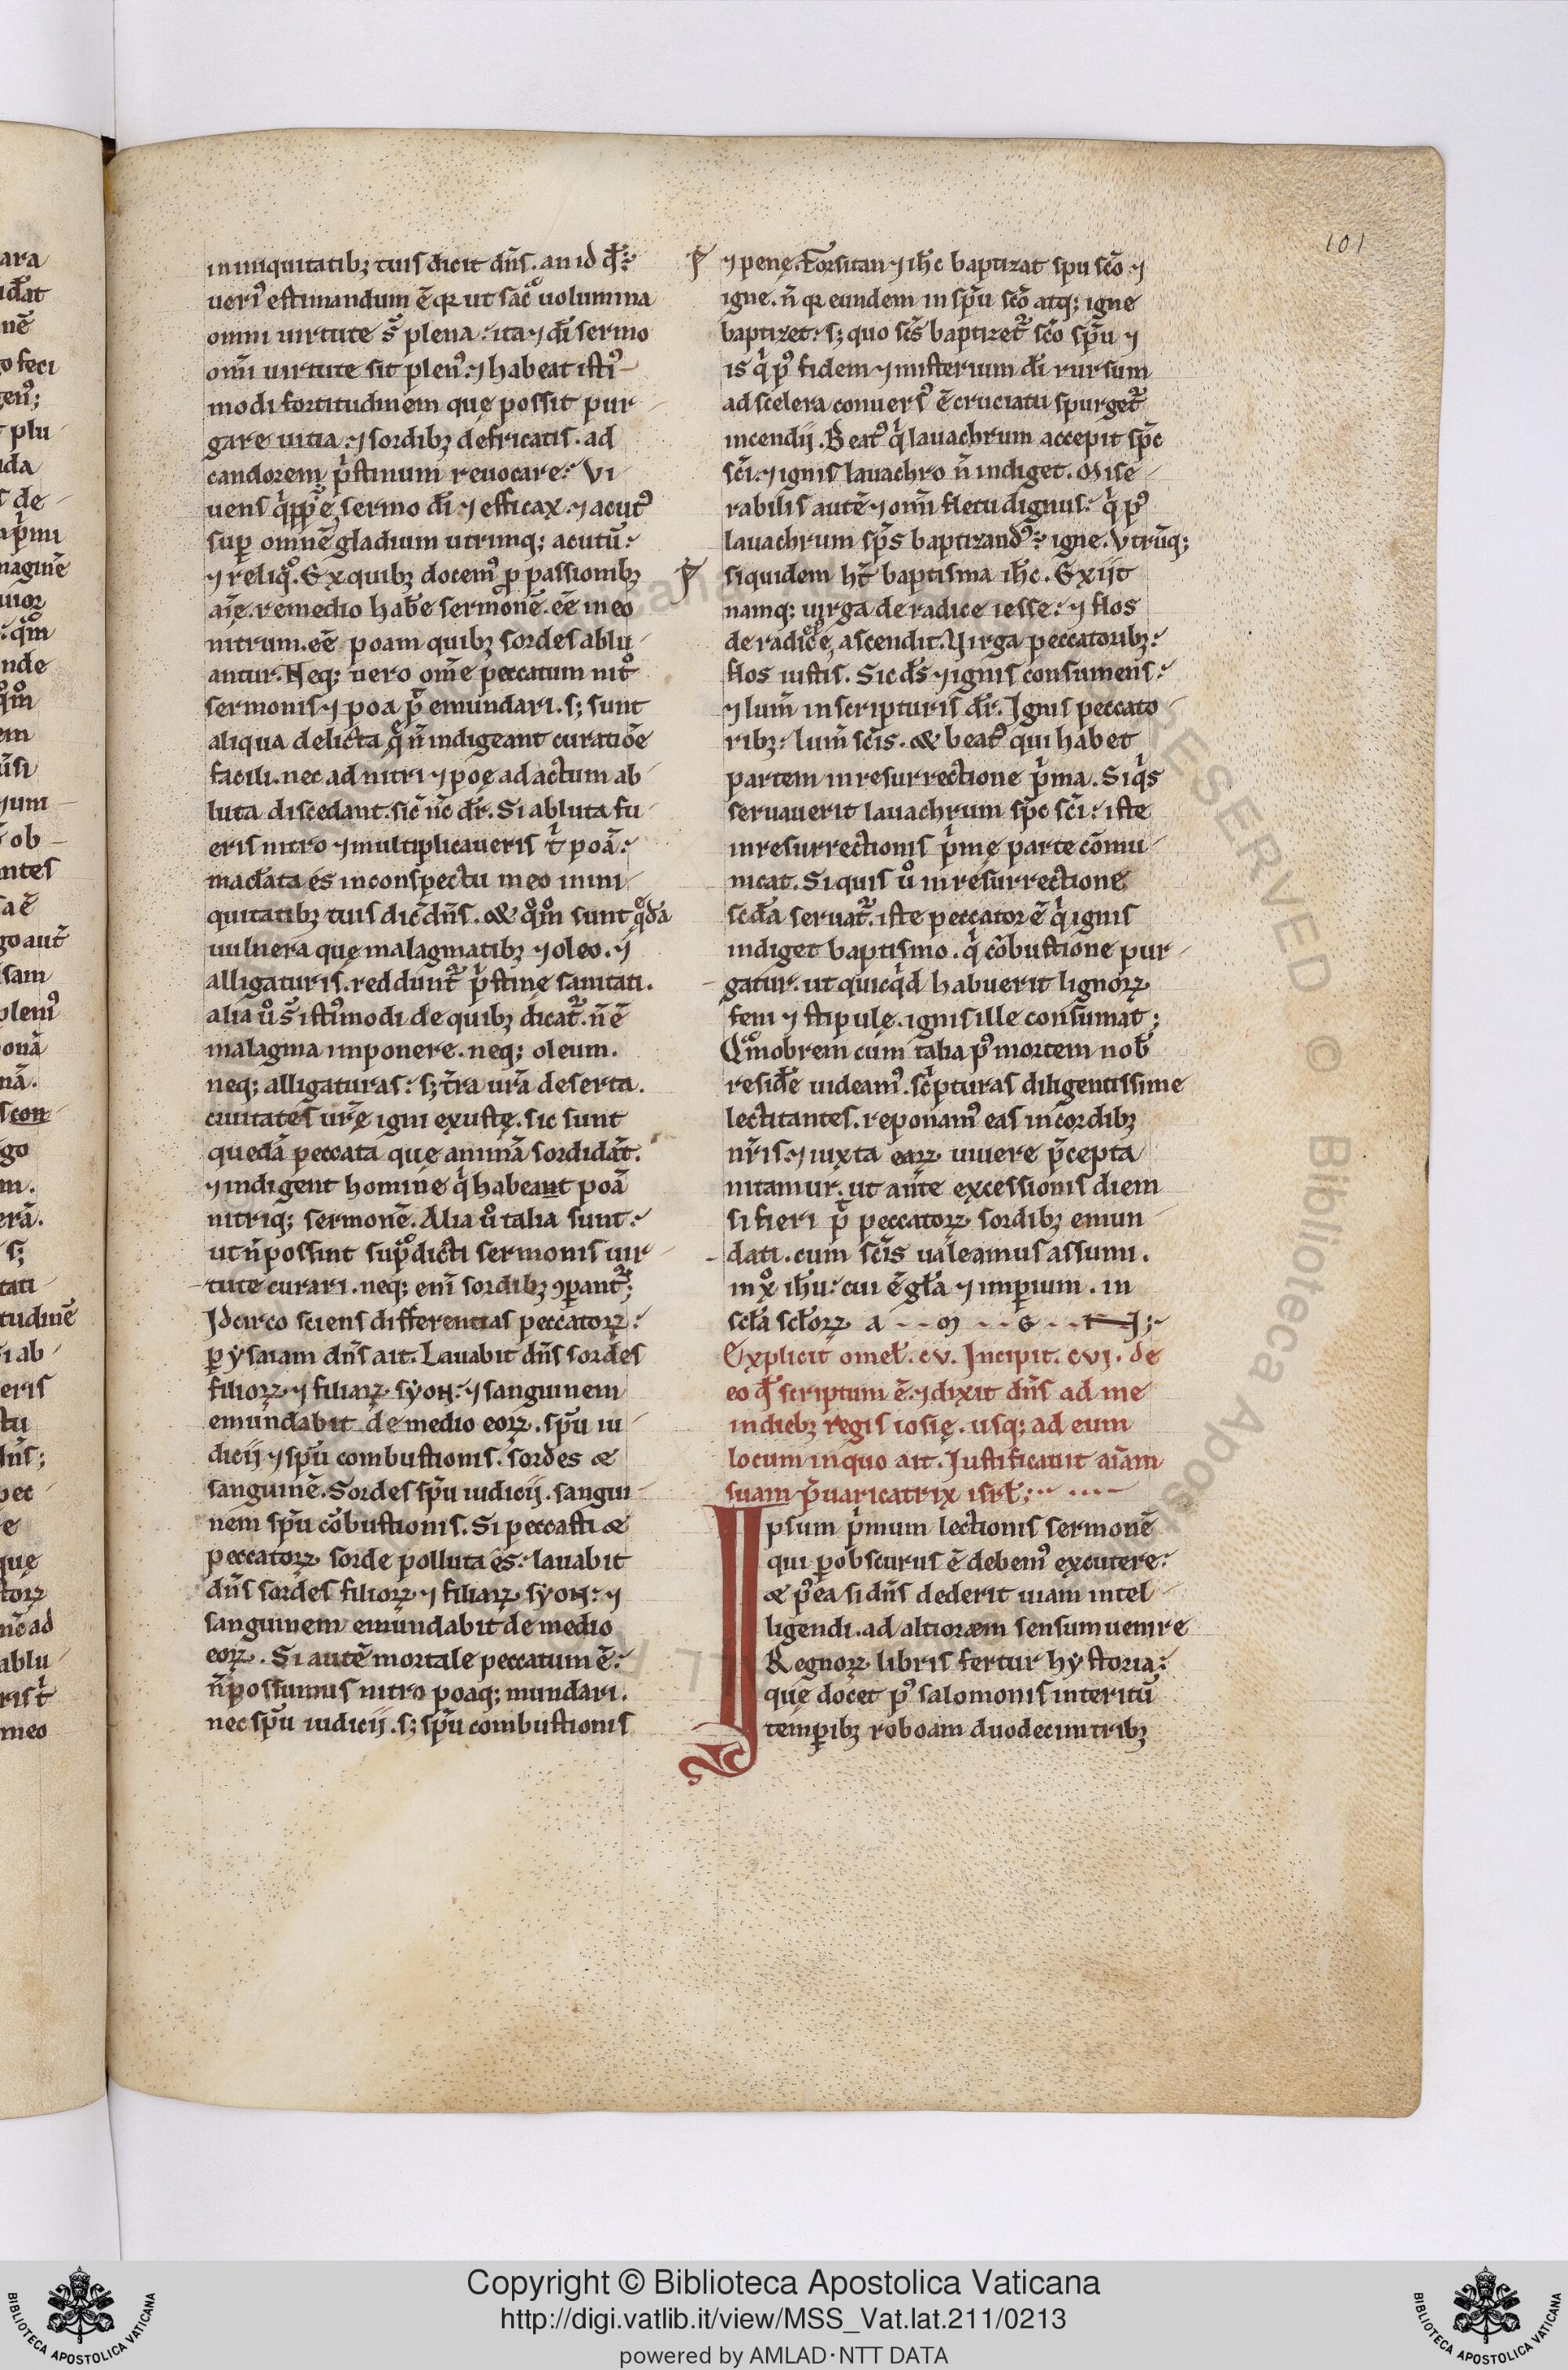 101
in iniquitatibꝫ tuis dicit dñs. an id qđ
ueri᷒ estimandum ē qꝛ ut sac̊ uolumina
omni uirtute s̄ plena. ita ⁊ di̅ sermo
omi̅ uirtute sit plen᷒. ⁊ habeat isti᷒-
modi fortitudinem quę possit pur-
gare uitia. ⁊ sordibꝫ defricatis. ad
candorem pͥstinum reuocare. Vi
uens qͥppͤ ę sermo di̅ ⁊ efficax. ⁊ acut᷒
suꝑ omnē gladium utrinq; acutū.
⁊ reliqͦ. Ex quibꝫ docem᷒ ꝓ passionibꝫ
aīę. remedio habe̅ sermonē. eē in eo
nitrum. eē poam quibꝫ sordes ablu-
antur. Neq; uero ome̅ peccatum nit̊
sermonis ⁊ poa pͦ emundari. s; sunt
aliqua delicta q̄ n̄ indigeant curatiōe
facili. nec ad nitri ⁊ poę ad actum ab-
luta discedant. sic̄ nc̄ dr̄. Si abluta fu-
eris nitro ⁊ multiplicaueris tͥ poā.
maclata es in conspectu meo inini-
quitatibꝫ tuis dic̄ dñs. & qͦmͦ sunt qͦda
uulnera quę malagmatibꝫ ⁊ oleo. ⁊
alligaturis. reddunt᷑ pͥstinę sanitati.
alia u̅ͦ s̄ isti᷒modi de quibꝫ dicat᷑. n̄ ē
malagma imponere. neq; oleum.
neq; alligaturas. s; t̄ra ur̄a deserta.
ciuitates ur̄ę igni exustę. sic sunt
quedā peccata quę animā sordidāt.
⁊ indigent homine qͥ habeant poā
nitriq; sermonē. Alia u̅ͦ talia sunt.
ut n̄ possint sup̄dicti sermonis uir-
tute curari. neq; eni̅ sordibꝫ ꝯꝑant᷑;
Idcirco sciens differentias peccatoꝝ.
ꝑ ẏsaiam dñs ait. Lauabit dñs sordes
filioꝝ ⁊ filiaꝝ sẏon. ⁊ sanguinem
emundabit de medio eoꝝ. spū iu-
dicij ⁊ spū combustionis. sordes æ
sanguinē. Sordes spū iudicij. sangui-
nem spū cōbustionis. Si peccasti æ
peccatoꝝ sorde polluta es. lauabit
dñs sordes filioꝝ ⁊ filiaꝝ sẏon. ⁊
sanguinem emundabit de medio
eoꝝ. Si autē mortale peccatum ē.
n̄ possumus nitro poaq; mundari.
nec spū iudicij. s; spū combustionis
⁊ penę. Forsitan ⁊ ihc̄ baptizat spu scō ⁊
igne. n̄ qꝛ eundem in spū scō atq; igne
baptizet. s; quo scs̄ baptizet᷑ scō spū ⁊
is qͥ p᷒ fidem ⁊ misterium di̅ rursum
ad scelera conuers᷒ ē cruciatu spurget᷑
incendij. Beat᷒ qͥ lauachrum accepit spc̄
sci̅. ⁊ ignis lauachro n̄ indiget. Mise-
rabilis autē ⁊ omi̅ fletu dignus. qͥ p᷒
lauachrum sps̄ baptizand᷒ igne. Vtrūq;
siquidem ht̄ baptisma ihc̄. Exijt
namq; uirga de radice iesse. ⁊ flos
de radice ascendit. Uirga peccatoribꝫ.
flos iustis. Sic ds̄ ⁊ ignis consumens.
⁊ lum̄ in scripturis dr̄. Ignis peccato-
ribꝫ. lum̄ scis̄. & beat᷒ qui habet
partem in resurrectione pͥma. Siqͥs
seruauerit lauachrum spc̄ sci̅. iste
in resurrectionis pͥmę parte cōmu-
nicat. Siquis u̅ͦ in resurrectione
scd̄a seruat᷑. iste peccator ē qͥ ignis
indiget baptismo. qͥ cōbustione pur-
gatur. ut quicqͥd habuerit lignoꝝ
feni ⁊ stipulę. ignis ille consumat;
Qͦmobrem cum talia p᷒ mortem nob̄
reside̅ uideam᷒. scͥpturas diligentissime
lectitantes. reponam᷒ eas in cordibꝫ
nr̄is. ⁊ iuxta earꝝ uiuere p̄cepta
nitamur. ut ante excessionis diem
si fieri pͦ peccatoꝝ sordibꝫ emun-
dati. cum scis̄ ualeamus assumi.
in xͦ ihu̅. cui ē gła ⁊ imꝑium. in
scła scłoꝝ a - - m - - e - - N;
Explicit omeł. cv. Incipit. cvj. de
eo qđ scriptum ē. ⁊ dixit dñs ad me
in diebꝫ regis iosię. usq; ad eum
locum in quo ait. Iustificauit aīam
suam p̄uaricatrix isrł;
Ipsum pͥmum lectionis sermonē
qui ꝑobscurus ē debem᷒ excutere.
æ p᷒ea si dñs dederit uiam intel-
ligendi. ad altiorem sensum uenire
Regnoꝝ libris fertur hẏstoria.
quę docet p᷒ salomonis interitū
temꝑibꝫ roboam duodecim tribꝫ
Copyright © Biblioteca Apostolica Vaticana
http://digi.vatlib.it/view/MSS_Vat.lat.211/0213
powered by AMLAD·NTT DATA